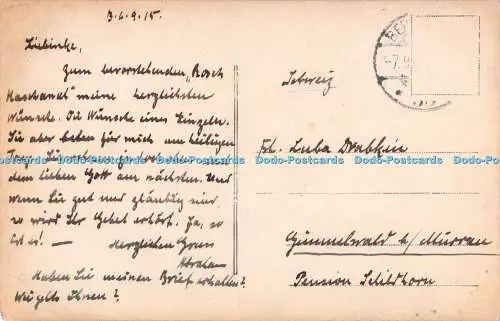 B. 6. 9. 15.
Liebinke,
Zum bevorstehenden „Rosch
Haschanah" meine herzlichsten
Wünsche. Die Wünsche eines Einzeln.
Sie aber beten für mich am heiligen
Tag. Sie
dem lieben Gott am nächsten. Und
wenn Sie gut und gläubig sind
so wird Ihr Gebet erhört. Ja, so
ist es! —
Herzlichen Gruss
Abraham
Haben Sie meinen Brief erhalten?
Wie gehts Ihnen?
BER
-7.9
Schweiz
Frl. Luba Drabkin
Gimmelwald b/ Mürren
Pension Schilthorn
Dodo-Postcards Dodo-Postcards Dodo-Postcards Dodo-Postcards Dodo-Postcards